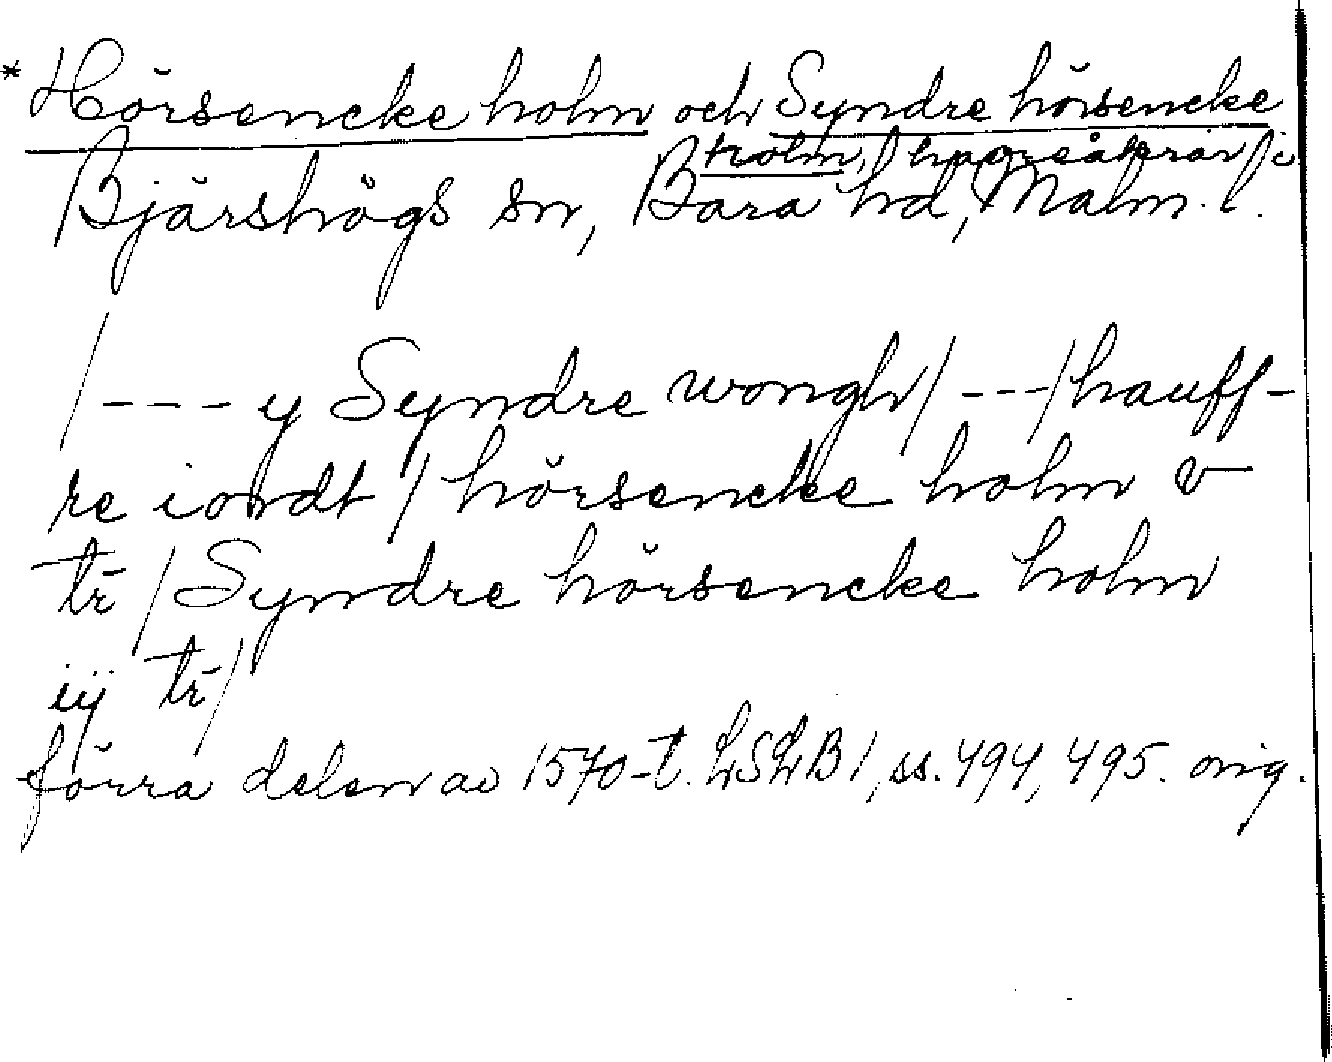 *Hörsencke holm och Syndre hörsencke
holm, havreåkrar i
Bjärshögs sn, Bara hd, Malm. l.
/---y Syndre wongh/---/hauff-
re iordt/hörsencke holm v
tr̄/Syndre hörsencke holm
iÿ tr̄/
förra delen av 1570-t. LSLB 1, ss. 494, 495. orig.